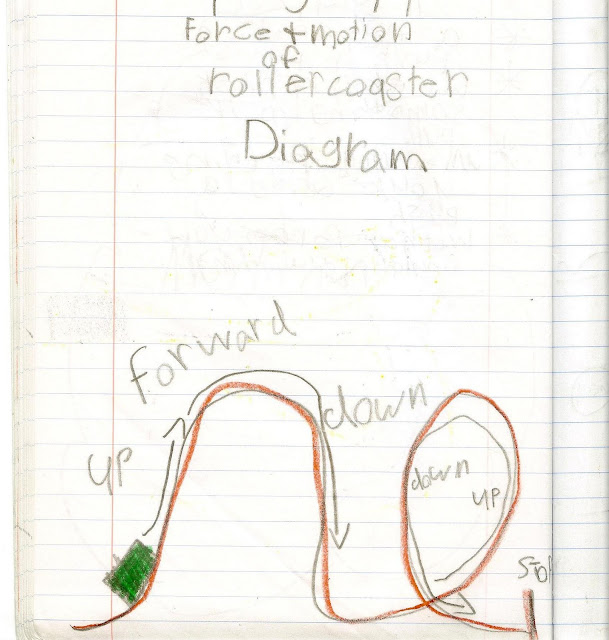 Force + motion
of
rollercoaster
Diagram
forward
up
down
down
up